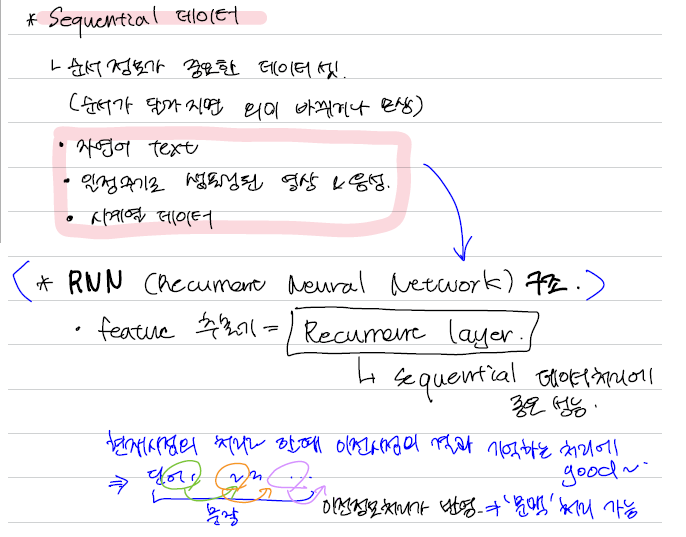 * Sequential 데이터
ㄴ 순서 정보가 중요한 데이터 셋.
(순서가 달라지면 의미 바뀌거나 손상)
• 자연어 text
• 일정주기로 샘플링된 영상 & 음성.
• 시계열 데이터
(* RNN (Recurrent Neural Network) 구조.)
• feature 추출기 = Recurrent layer.
ㄴ sequential 데이터처리에
좋은 성능.
현재시점의 처리를 위해 이전시점의 결과 기억하는 처리에
good~
⇒ 단어1 ~2 ...
문장
이전정보처리가 반영 → '문맥' 처리 가능